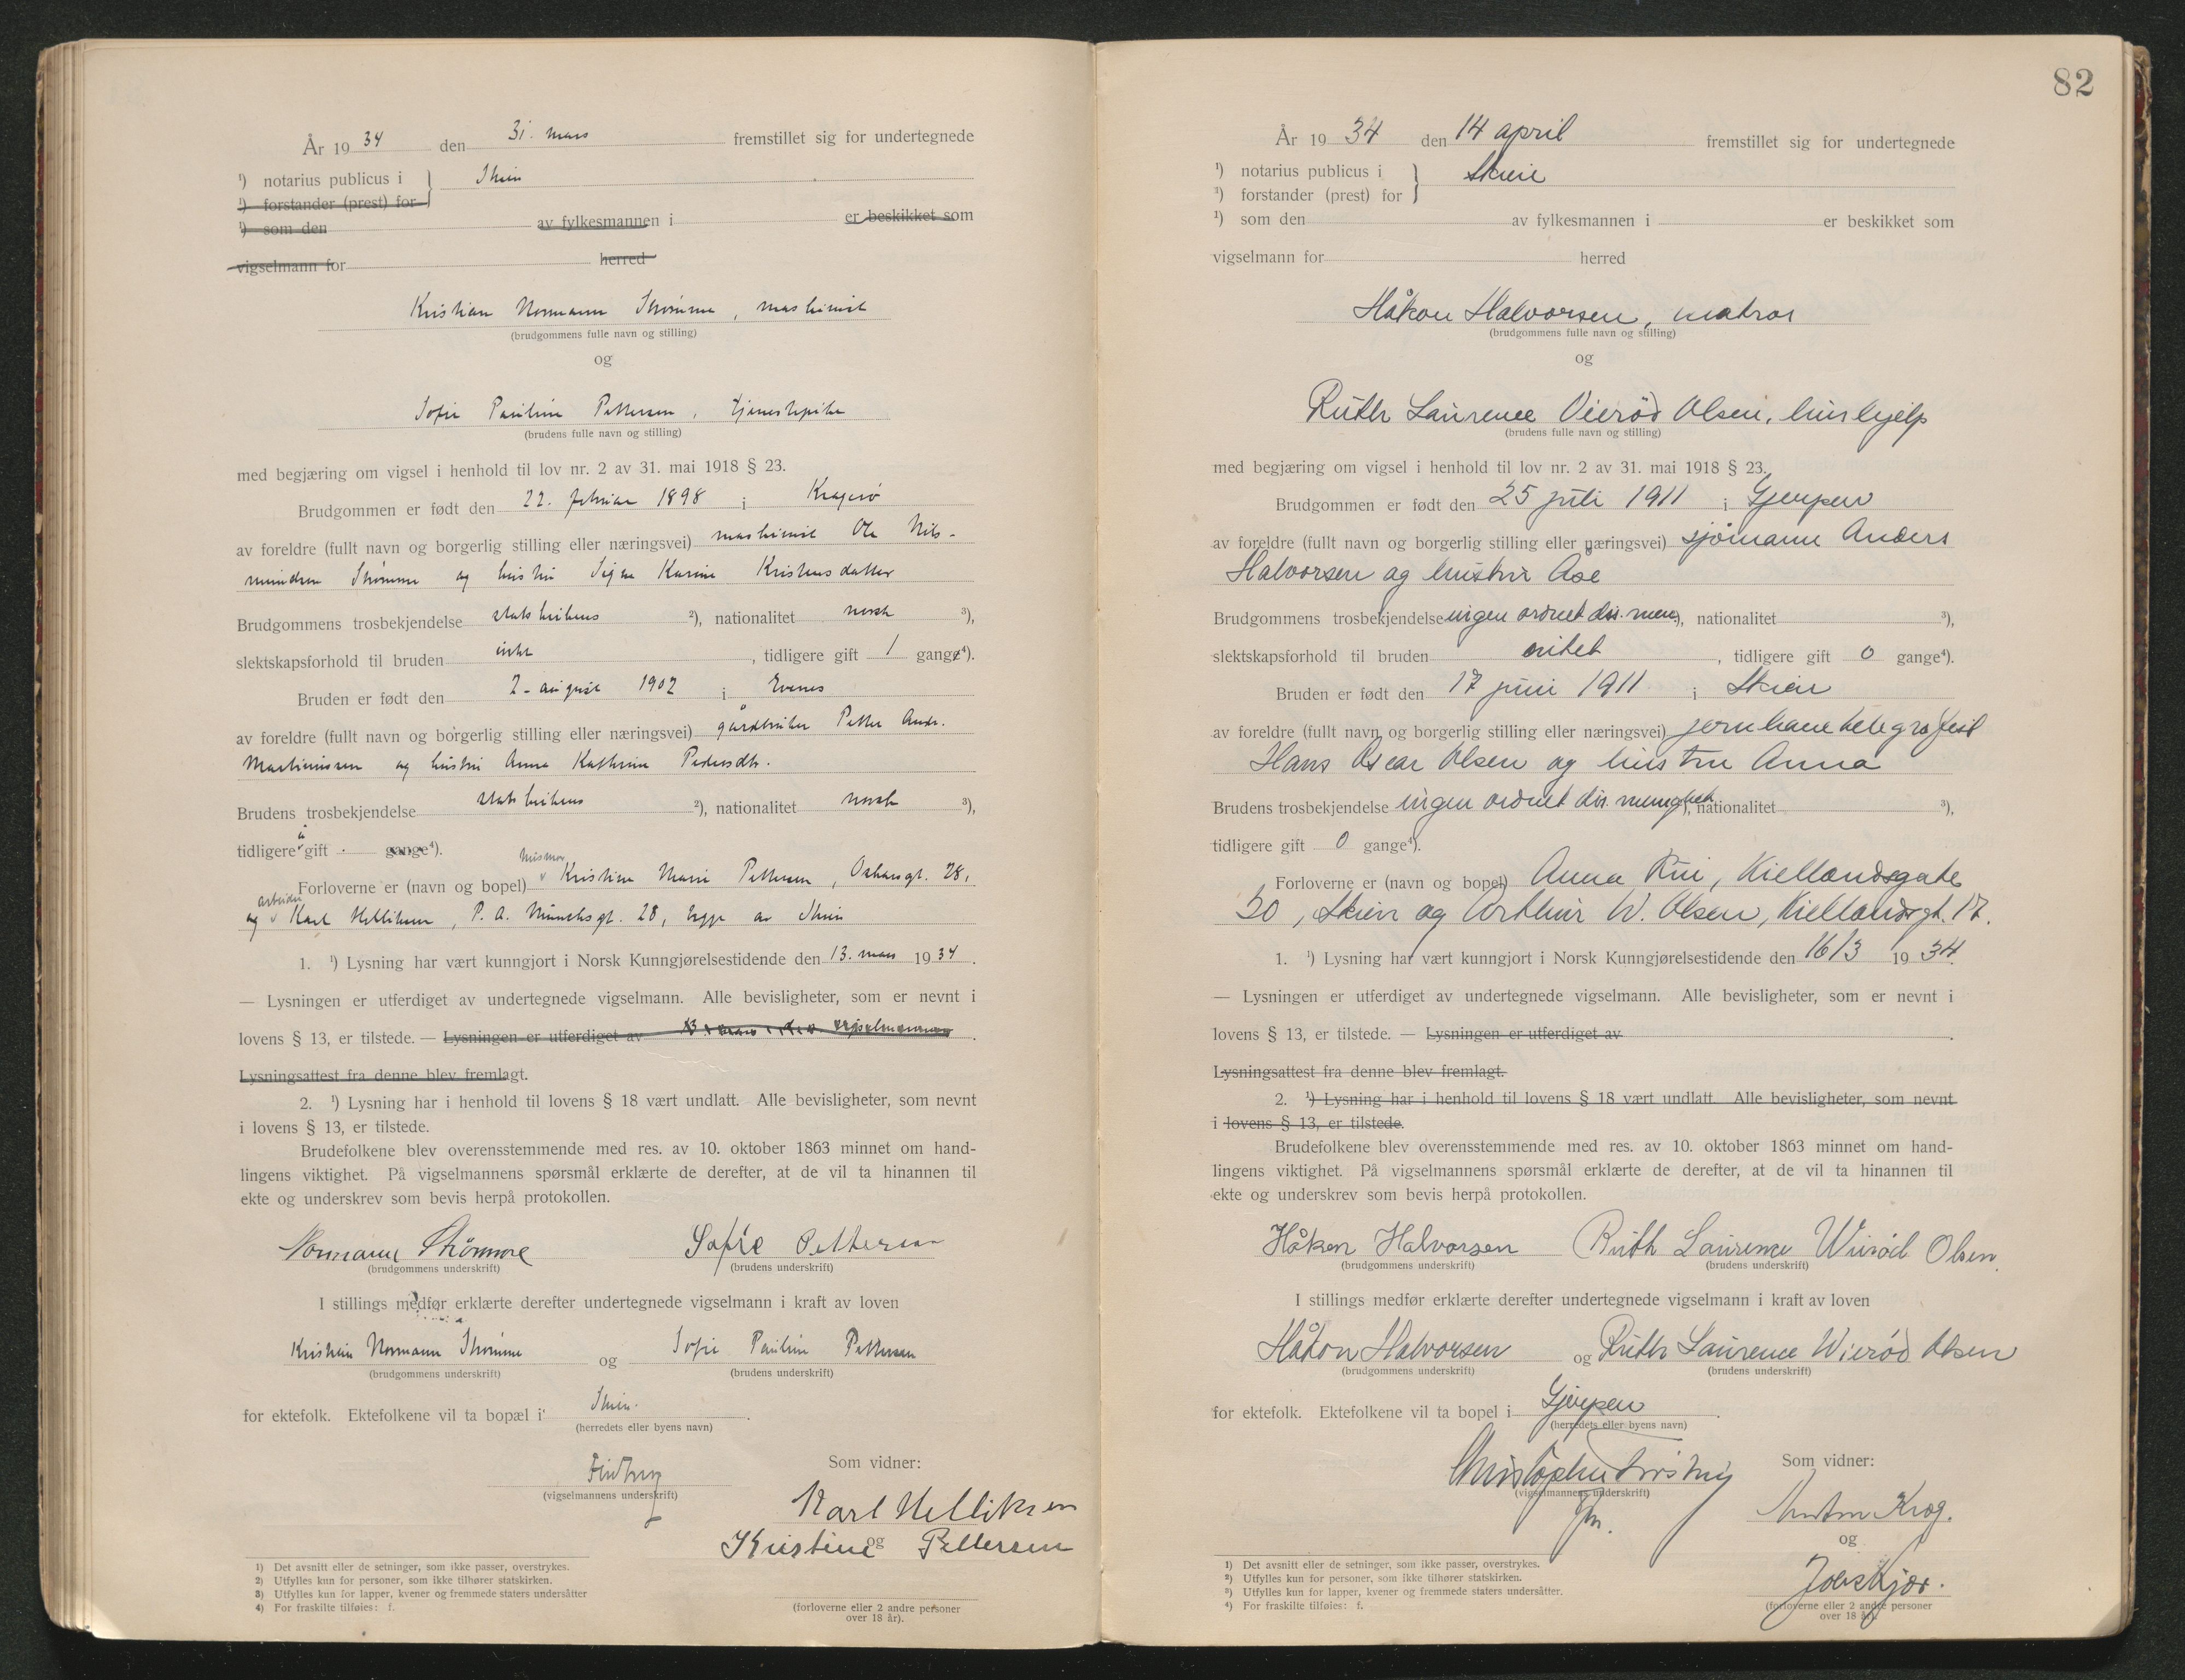 År 19 34 den 31. mars fremstillet sig for undertegnede
¹) notarius publicus i } Skien
¹) forstander (prest) for
¹) som den av fylkesmannen i er beskikket som
vigselmann for herred
Kristian Normann Strømme, maskinist
(brudgommens fulle navn og stilling)
og
Sofie Pauline Pettersen, tjenestepike
(brudens fulle navn og stilling)
med begjæring om vigsel i henhold til lov nr. 2 av 31. mai 1918 § 23.
Brudgommen er født den 22. februar 1898 i Kragerø
av foreldre (fullt navn og borgerlig stilling eller næringsvei) maskinist Ole Nils-
Strømme og hustru Signe Karine Kristensdatter
Brudgommens trosbekjendelse statskirkens ²), nationalitet norsk ³),
slektskapsforhold til bruden intet, tidligere gift 1 gang⁴).
Bruden er født den 2. august 1902 i Evenes
av foreldre (fullt navn og borgerlig stilling eller næringsvei) gårdbruker Petter Andr.
Martinussen og hustru Anna Kathrine Pedersdtr.
Brudens trosbekjendelse statskirkens ²), nationalitet norsk ³),
tidligere gift gange⁴).
husmor
Forloverne er (navn og bopel) Kristine Marie Pettersen, Oskarsgt. 28,
arbeider
og Karl Helliksen, P. A. Munchsgt. 28, begge av Skien
1. ¹) Lysning har vært kunngjort i Norsk Kunngjørelsestidende den 13. mars 19 34.
— Lysningen er utferdiget av undertegnede vigselmann. Alle bevisligheter, som er nevnt i
lovens § 13, er tilstede. — Lysningen er utferdiget av vigselmannen
Lysningsattest fra denne blev fremlagt.
2. ¹) Lysning har i henhold til lovens § 18 vært undlatt. Alle bevisligheter, som nevnt
i lovens § 13, er tilstede.
Brudefolkene blev overensstemmende med res. av 10. oktober 1863 minnet om hand-
lingens viktighet. På vigselmannens spørsmål erklærte de derefter, at de vil ta hinannen til
ekte og underskrev som bevis herpå protokollen.
Normann Strømme Sofie Pettersen
(brudgommens underskrift) (brudens underskrift)
I stillings medfør erklærte derefter undertegnede vigselmann i kraft av loven
Kristian Normann Strømme og Sofie Pauline Pettersen
(brudgommens underskrift) (brudens underskrift)
for ektefolk. Ektefolkene vil ta bopæl i Skien.
(herredets eller byens navn)
Som vidner:
(vigselmannens underskrift)
Karl Helliksen
og
Kristine Pettersen
1) Det avsnitt eller de setninger, som ikke passer, overstrykes.
2) Utfylles kun for personer, som ikke tilhører statskirken.
3) Utfylles kun for lapper, kvener og fremmede staters undersåtter
4) For fraskilte tilføies: f.
(forloverne eller 2 andre personer
over 18 år).
82
År 19 34 den 14 april fremstillet sig for undertegnede
¹) notarius publicus i } Skien
³) forstander (prest) for
¹) som den av fylkesmannen i er beskikket som
vigselmann for herred
Håkon Halvorsen, matros
(brudgommens fulle navn og stilling)
og
Ruth Laurence Vierød Olsen, hushjelp
(brudens fulle navn og stilling)
med begjæring om vigsel i henhold til lov nr. 2 av 31. mai 1918 § 23.
Brudgommen er født den 25 juli 1911 i Gjerpen
av foreldre (fullt navn og borgerlig stilling eller næringsvei) sjømann Anders
Halvorsen og hustru Åse
Brudgommens trosbekjendelse ingen ordnet dis. men), nationalitet ³),
slektskapsforhold til bruden intet, tidligere gift 0 gange⁴).
Bruden er født den 17 juni 1911 i Skien
av foreldre (fullt navn og borgerlig stilling eller næringsvei) jernbanetelegrafist
Hans Oscar Olsen og hustru Anna
Brudens trosbekjendelse ingen ordnet dis. menighet), nationalitet ³),
tidligere gift 0 gange⁴).
Forloverne er (navn og bopel) Anna Rui, Kiellandsgate
30, Skien og Arthur W. Olsen, Kiellandsgt. 17.
1. ¹) Lysning har vært kunngjort i Norsk Kunngjørelsestidende den 16/3 19 34.
— Lysningen er utferdiget av undertegnede vigselmann. Alle bevisligheter, som er nevnt i
lovens § 13, er tilstede. — Lysningen er utferdiget av.
Lysningsattest fra denne blev fremlagt.
2. ¹) Lysning har i henhold til lovens § 18 vært undlatt. Alle bevisligheter, som nevnt
i lovens § 13, er tilstede.
Brudefolkene blev overensstemmende med res. av 10. oktober 1863 minnet om hand-
lingens viktighet. På vigselmannens spørsmål erklærte de derefter, at de vil ta hinannen til
ekte og underskrev som bevis herpå protokollen.
Håkon Halvorsen Ruth Laurence Wierød Olsen.
(brudgommens underskrift) (brudens underskrift)
I stillings medfør erklærte derefter undertegnede vigselmann i kraft av loven
Håkon Halvorsen og Ruth Laurence Wierød Olsen
(brudgommens underskrift) (brudens underskrift)
for ektefolk. Ektefolkene vil ta bopel i Gjerpen.
(herredets eller byens navn)
Som vidner:
(vigselmannens underskrift)
Anton Krog.
og
1) Det avsnitt eller de setninger, som ikke passer, overstrykes.
2) Utfylles kun for personer, som ikke tilhører statskirken.
3) Utfylles kun for lapper, kvener og fremmede staters undersåtter.
4) For fraskilte tilføies: f.
(forloverne eller 2 andre personer
over 18 år).